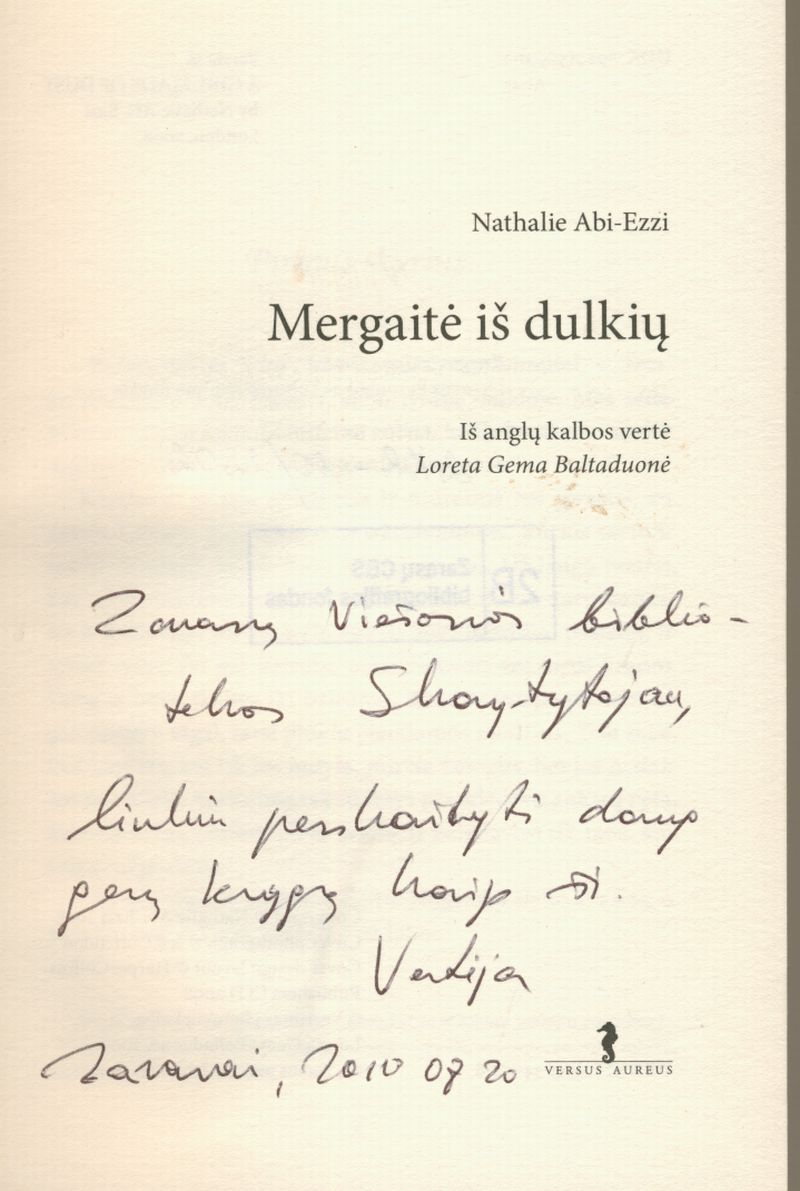 Nathalie Abi-Ezzi
Mergaitė iš dulkių
Iš anglų kalbos vertė
Loreta Gema Baltaduonė
Zarasų Viešosios biblio-
tekos Skaitytojau,
linkiu perskaityti daug
gerų knygų kaip ši.
Vertėja
Zarasai, 2010 07 20
VERSUS AUREUS
2B
Zarasų CBS
bibliografijos fondas